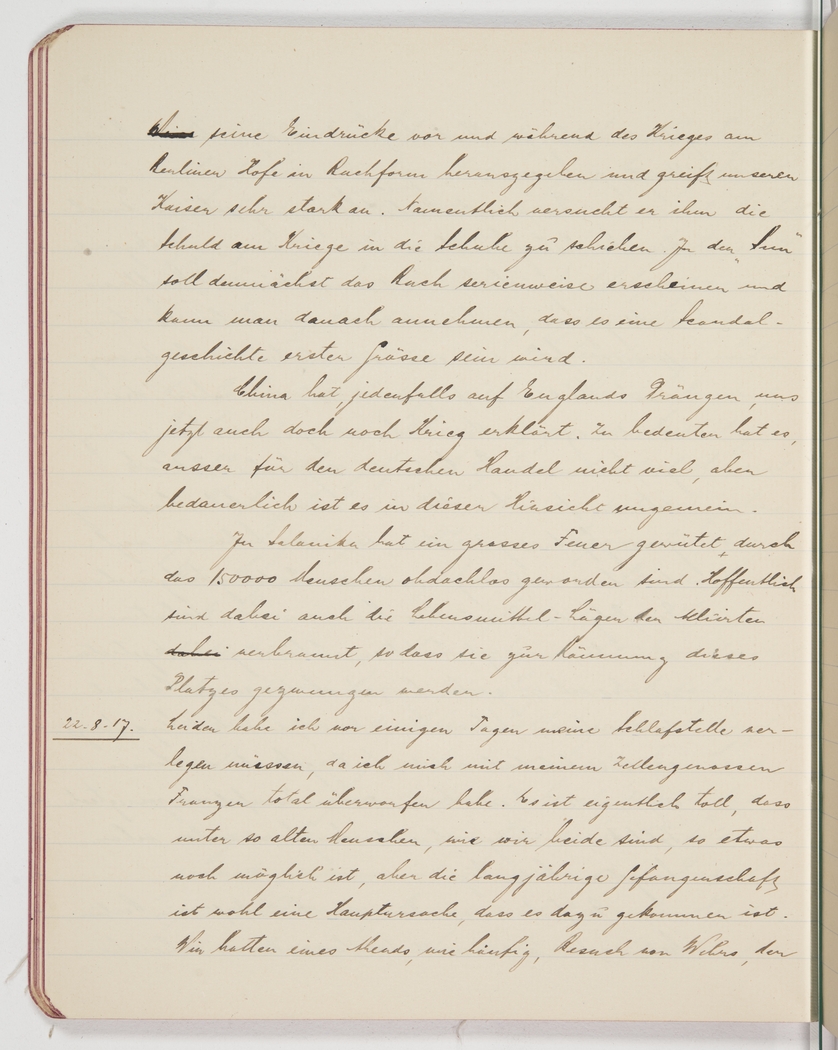 seine Eindrücke vor und während des Krieges am
Berliner Hofe in Buchform herausgegeben und greift unseren
Kaiser sehr stark an. Namentlich versucht er ihm die
Schuld am Kriege in die Schuhe zu schieben. In der „Sun"
soll demnächst das Buch serienweise erscheinen und
kann man danach annehmen, dass es eine Scandal-
geschichte erster Grösse sein wird.
China hat, jedenfalls auf Englands Drängen, uns
jetzt auch doch noch Krieg erklärt. Zu bedeuten hat es,
ausser für den deutschen Handel nicht viel, aber
bedauerlich ist es in dieser Hinsicht ungemein.
In Salonika hat ein grosses Feuer gewütet, durch
das 150000 Menschen obdachlos geworden sind. Hoffentlich
sind dabei auch die Lebensmittel-Läger der Alliirten
dabei verbrannt, so dass sie zur Räumung dieses
Platzes gezwungen werden.
22.8.17. Leider habe ich vor einigen Tagen meine Schlafstelle ver-
legen müssen, da ich mich mit meinem Zellengenossen
Franzen total überworfen habe. Es ist eigentlich toll, dass
unter so alten Menschen, wie wir beide sind, so etwas
noch möglich ist, aber die langjährige Gefangenschaft
ist wohl eine Hauptursache, dass es dazu gekommen ist.
Wir hatten eines Abends, wie häufig, Besuch von Wehrs, der